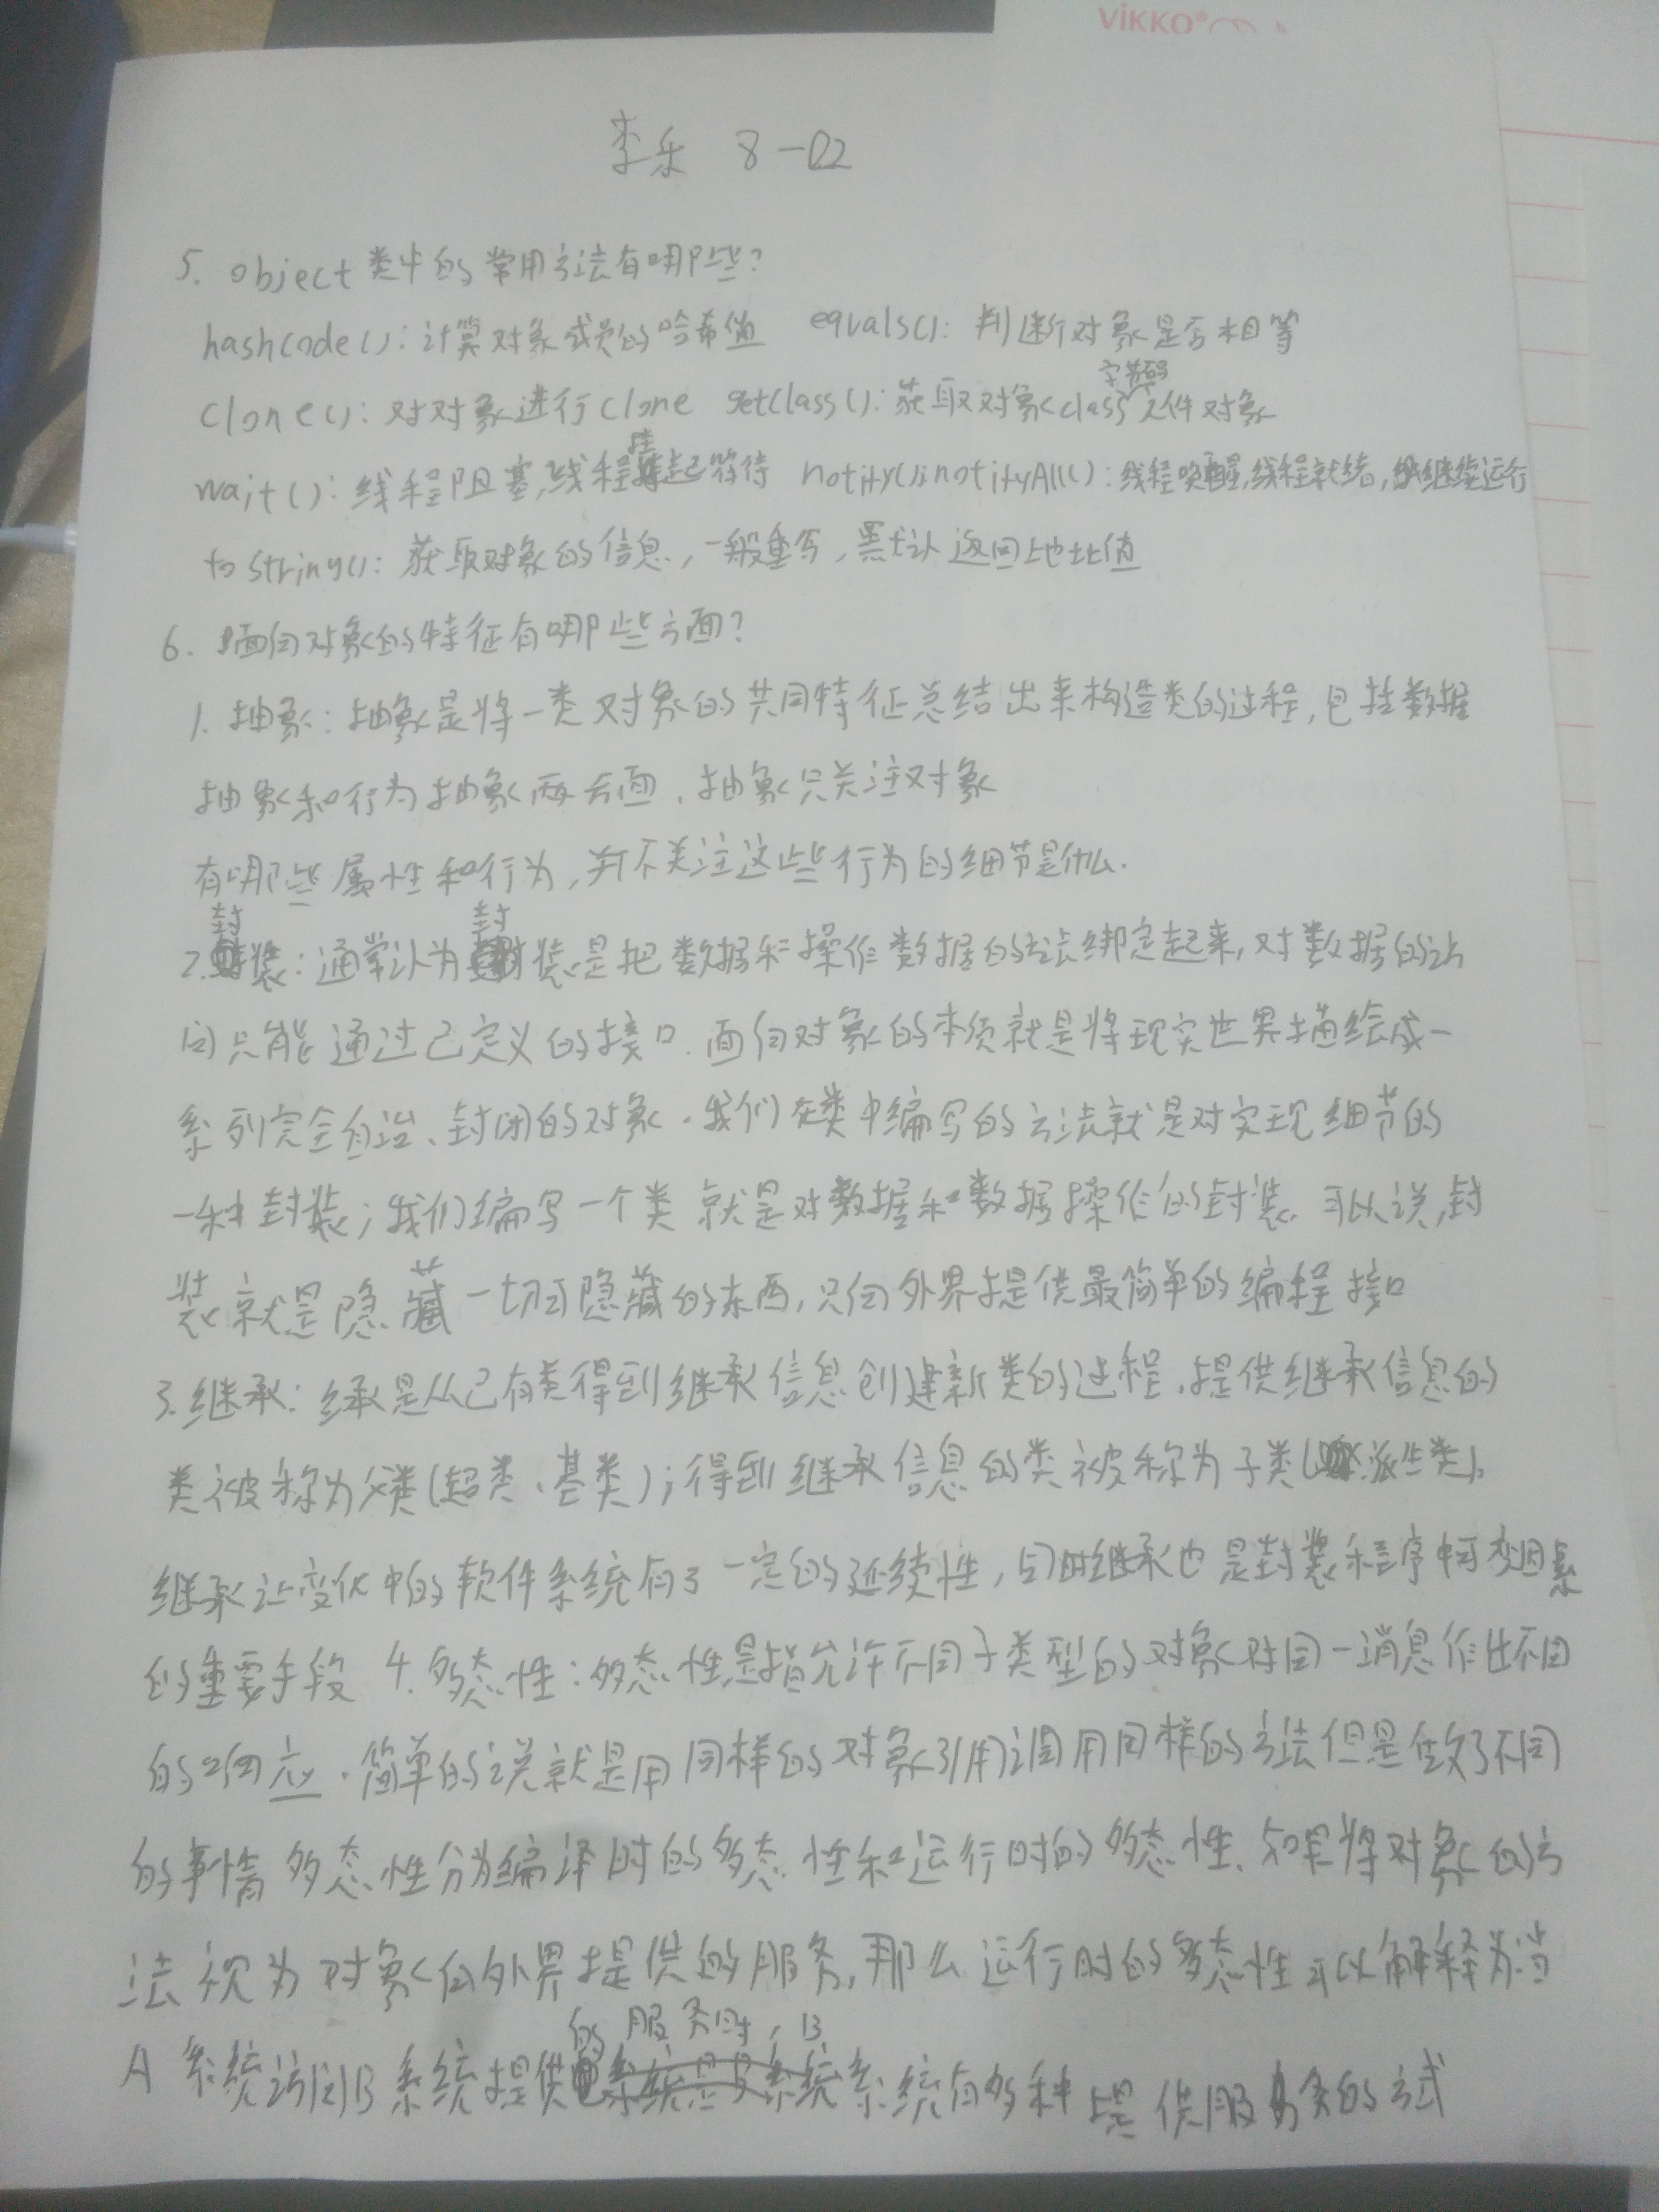 VIKKO®
李乐 8-02
5. object类中的常用方法有哪些?
hashcode(): 计算对象成员的哈希值 equals(): 判断对象是否相等
clone(): 对对象进行clone getclass(): 获取对象class字节码文件对象
wait(): 线程阻塞,线程挂起等待 notify();notifyAll(): 线程唤醒,线程就绪,继续运行
toString(): 获取对象的信息,一般重写,默认返回地址值
6. 面向对象的特征有哪些方面?
1. 抽象: 抽象是将一类对象的共同特征总结出来构造类的过程,包括数据
抽象和行为抽象两方面.抽象只关注对象
有哪些属性和行为,并不关注这些行为的细节是什么.
2.封装: 通常认为封装是把数据和操作数据的方法绑定起来,对数据的访
问只能通过已定义的接口.面向对象的本质就是将现实世界描绘成一
系列完全自治、封闭的对象.我们在类中编写的方法就是对实现细节的
一种封装;我们编写一个类就是对数据和数据操作的封装.可以说,封
装就是隐藏一切可隐藏的东西,只向外界提供最简单的编程接口
3.继承: 继承是从已有类得到继承信息创建新类的过程.提供继承信息的
类被称为父类(超类、基类);得到继承信息的类被称为子类(派生类).
继承让变化中的软件系统有了一定的延续性,同时继承也是封装程序中可变因素
的重要手段 4. 多态性:多态性是指允许不同子类型的对象对同一消息作出不同
的响应.简单的说就是用同样的对象引用调用同样的方法但是做了不同
的事情 多态性分为编译时的多态性和运行时的多态性.如果将对象的方
法视为对象向外界提供的服务,那么运行时的多态性可以解释为:当
A系统访问B系统提供的服务时,B系统有多种提供服务的方式